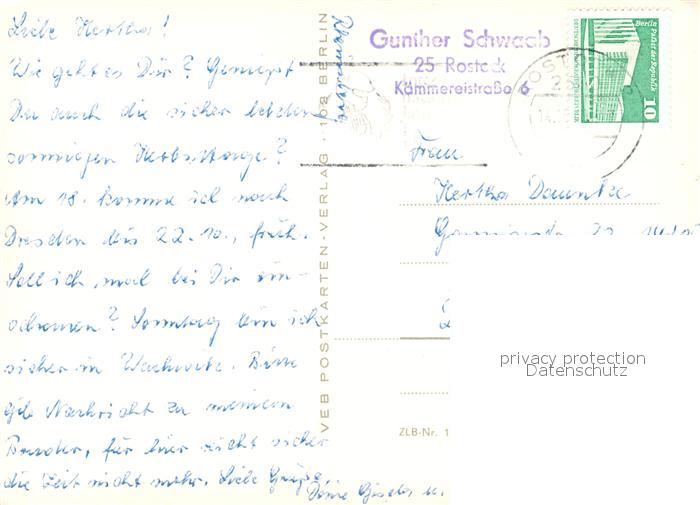 Liebe Hertha!
Wie geht es Dir? Geniesst
Du auch die sicher letzten
sonnigen Herbsttage?
Am 18. komme ich nach
Dresden bis 22.10., früh.
Soll ich mal bei Dir rein-
schauen? Sonntag bin ich
sicher in Wachwitz. Bitte
gib Nachricht zu meinem
Bruder, für hier reicht sicher
die Zeit nicht mehr. Liebe Grüße
Deine Gisela u.
VEB POSTKARTEN-VERLAG · 102 BERLIN
Gunther Schwaab
25 Rostock
Kämmereistraße 6
Berlin, Palast der Republik
10
Frau
Hertha
ZLB-Nr. 1
privacy protection
Datenschutz